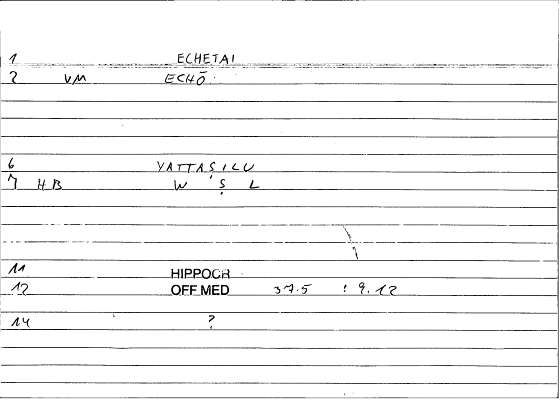 1 ECHETAI
2 VM ECHŌ
6 YATTAṢILU
7 HB W Ṣ L
11 HIPPOCR
12 OFF MED 37.5 : 9.12
14 ?